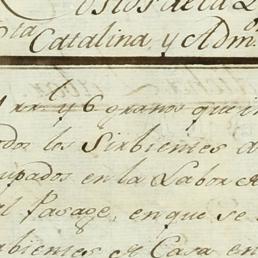 Costos de la L
ta Catalina, y Adm.
rr.s y 6 granos que i
dos los Sirbientes d
upados en la Labor
al Pasage, en que se
bientes de Casa en